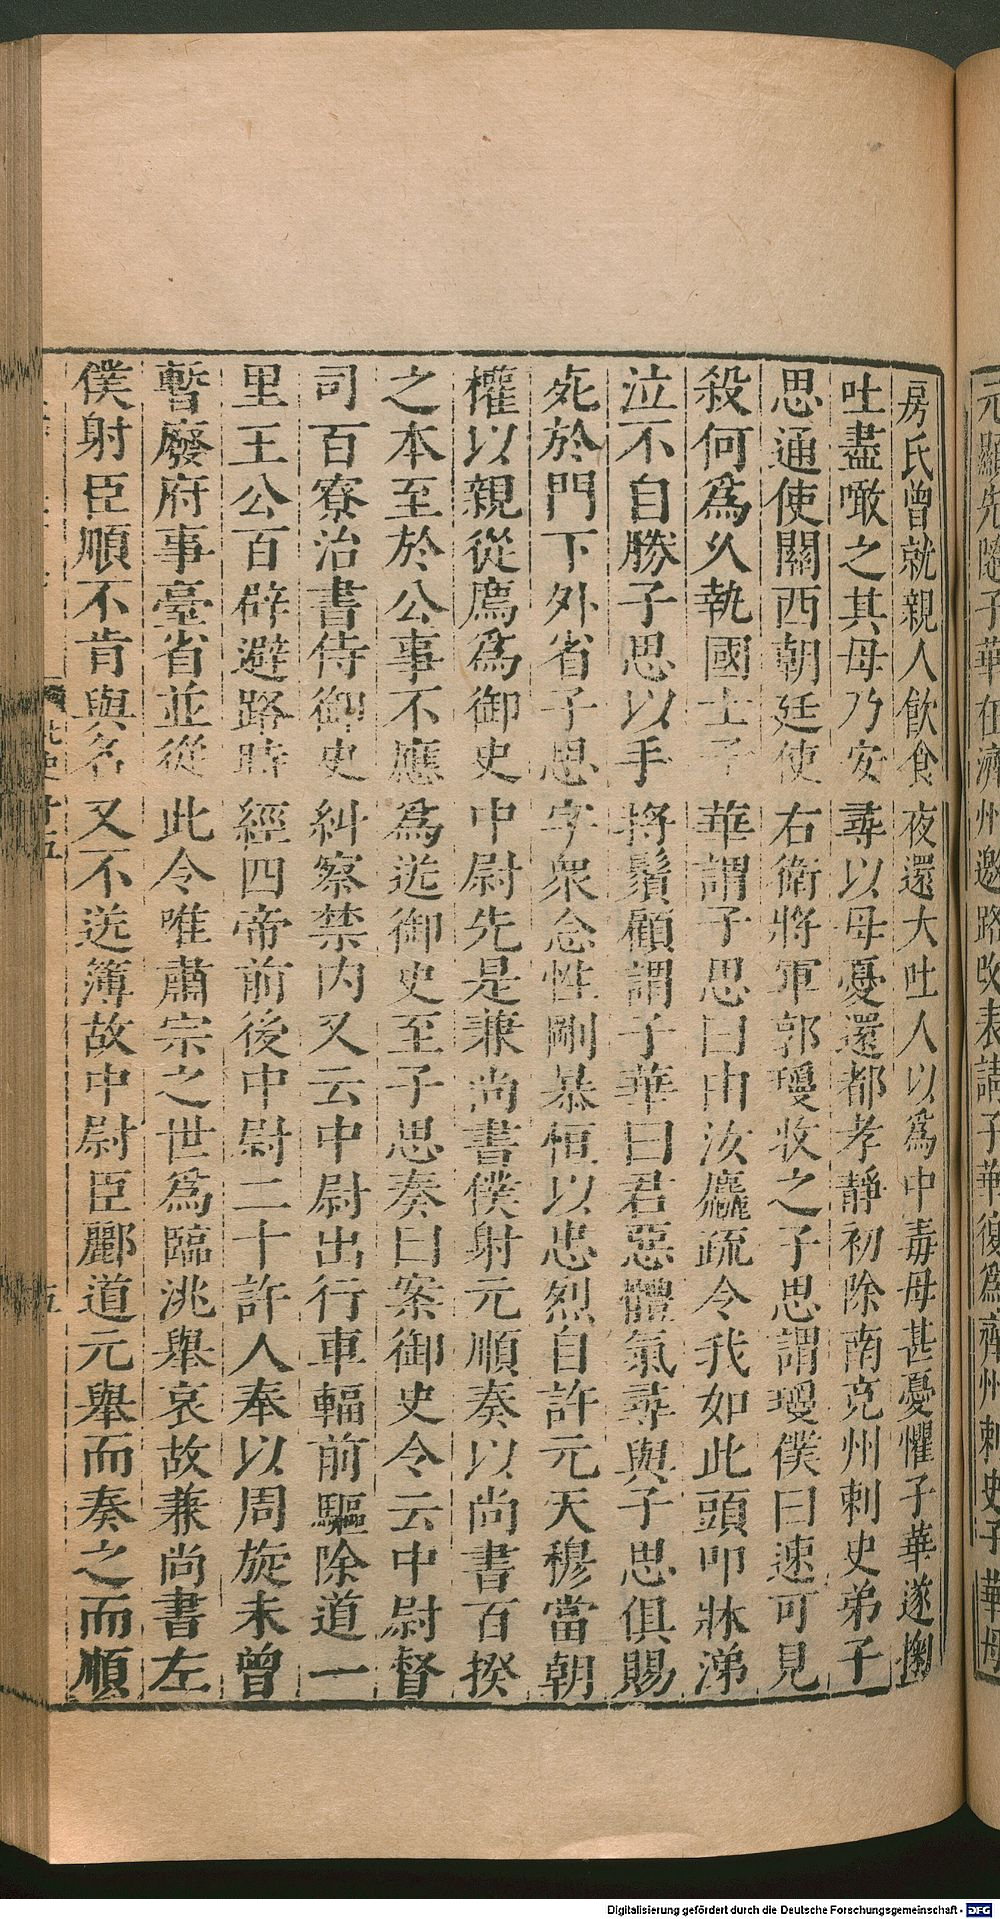 元顯先隨子華在濟州邀路改表請子華復爲齊州刺史子華母
房氏曾就親人飲食夜還大吐人以爲中毒母甚憂懼子華遂掬
吐盡噉之其母乃安尋以母憂還都孝靜初除南兗州刺史弟子
思通使關西朝廷使右衛將軍郭瓊收之子思謂瓊僕曰速可見
殺何爲久執國士子華謂子思曰由汝麤疏令我如此頭叩牀涕
泣不自勝子思以手將鬚顧謂子華曰君惡體氣尋與子思俱賜
死於門下外省子思字衆念性剛暴恒以忠烈自許元天穆當朝
權以親從薦爲御史中尉先是兼尚書僕射元順奏以尚書百揆
之本至於公事不應爲送御史至子思奏曰案御史令云中尉督
司百寮治書侍御史糾察禁内又云中尉出行車輻前驅除道一
里王公百辟避路時經四帝前後中尉二十許人奉以周旋未曾
暫廢府事臺省並從此令唯肅宗之世爲臨洮舉哀故兼尚書左
僕射臣順不肯與名又不送簿故中尉臣酈道元舉而奏之而順
北史十五
五
Digitalisierung gefördert durch die Deutsche Forschungsgemeinschaft - DFG